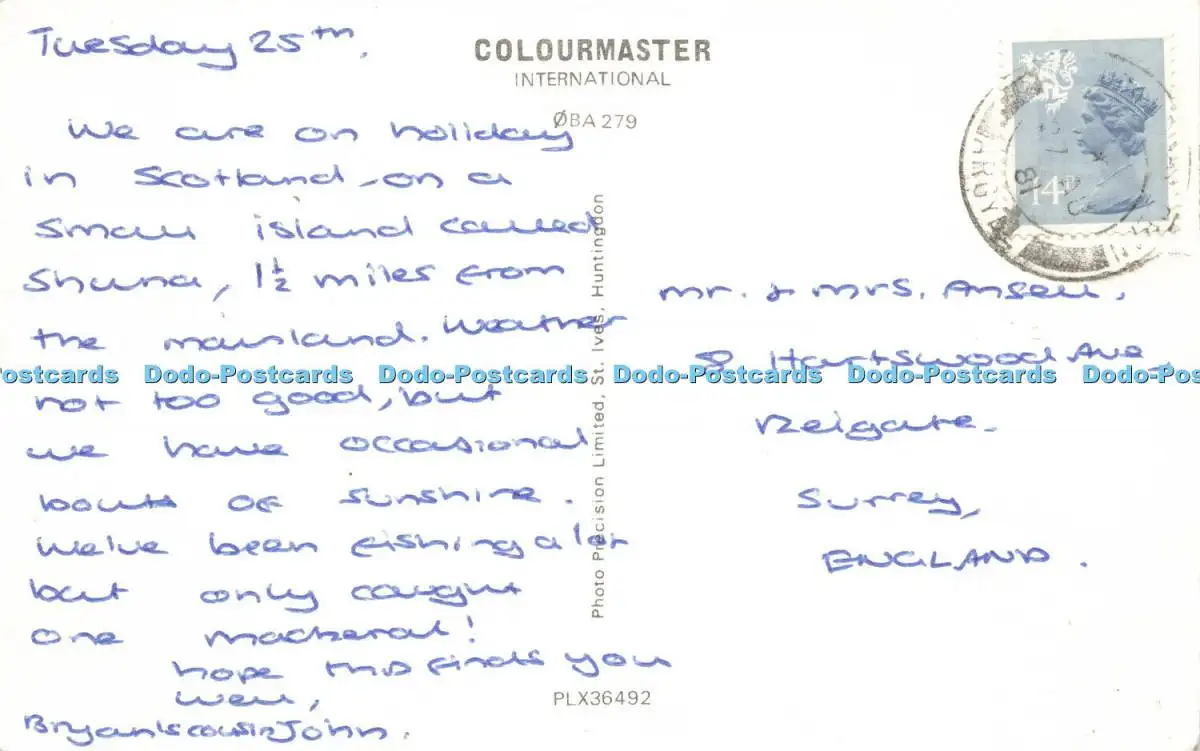 Tuesday 25th.
We are on holiday
in Scotland - on a
small island called
Shuna, 1½ miles from
the mainland. Weather
not too good, but
we have occasional
bouts of sunshine.
We've been fishing a lot
but only caught
one mackeral!
hope this finds you
well,
Bryan's cousin John.
COLOURMASTER
INTERNATIONAL
ØBA 279
Photo Precision Limited, St. Ives, Huntingdon
PLX36492
14P
Mr. & Mrs. Ansell,
8 Hartswood Ave
Reigate.
Surrey,
ENGLAND.
Dodo-Postcards Dodo-Postcards Dodo-Postcards Dodo-Postcards